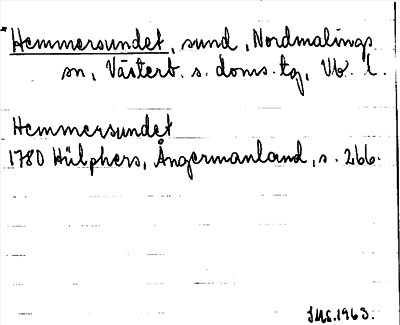 Hemmersundet, sund, Nordmalings
sn, Västerb. s. doms. tg, Vb. l.
Hemmersundet
1780 Hülphers, Ångermanland, s. 266.
IMS.1963.